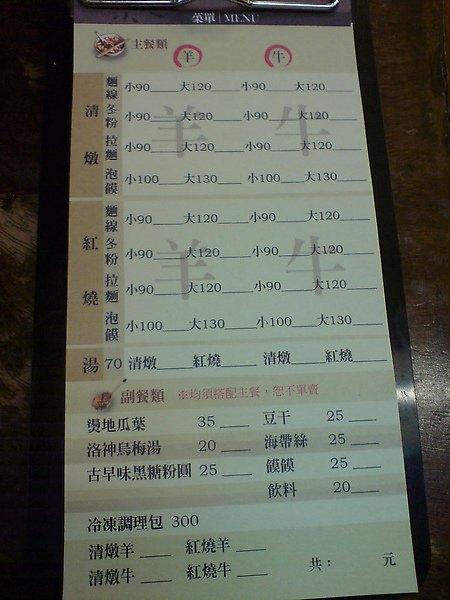 菜單 | MENU
主餐類 羊 牛
清燉
麵線 小90___大120___ 小90___大120___
冬粉 小90___大120___ 小90___大120___
拉麵 小90___大120___ 小90___大120___
泡饃 小100___大130___ 小100___大130___
羊 牛
紅燒
麵線 小90___大120___ 小90___大120___
冬粉 小90___大120___ 小90___大120___
拉麵 小90___大120___ 小90___大120___
泡饃 小100___大130___ 小100___大130___
羊 牛
湯 70 清燉___紅燒___ 清燉___紅燒___
副餐類 ※均須搭配主餐，恕不單賣
燙地瓜葉 35 ___ 豆干 25 ___
洛神烏梅湯 20 ___ 海帶絲 25 ___
古早味黑糖粉圓 25 ___ 饃饃 25 ___
飲料 20___
冷凍調理包 300
清燉羊 ___ 紅燒羊 ___
清燉牛 ___ 紅燒牛 ___ 共： 元